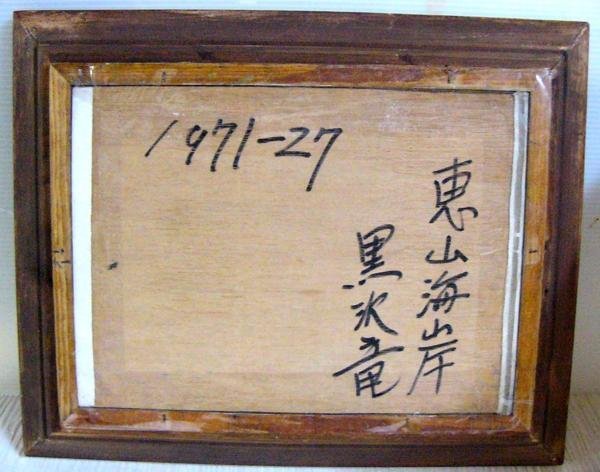 1971-27
恵山海岸
黒沢竜